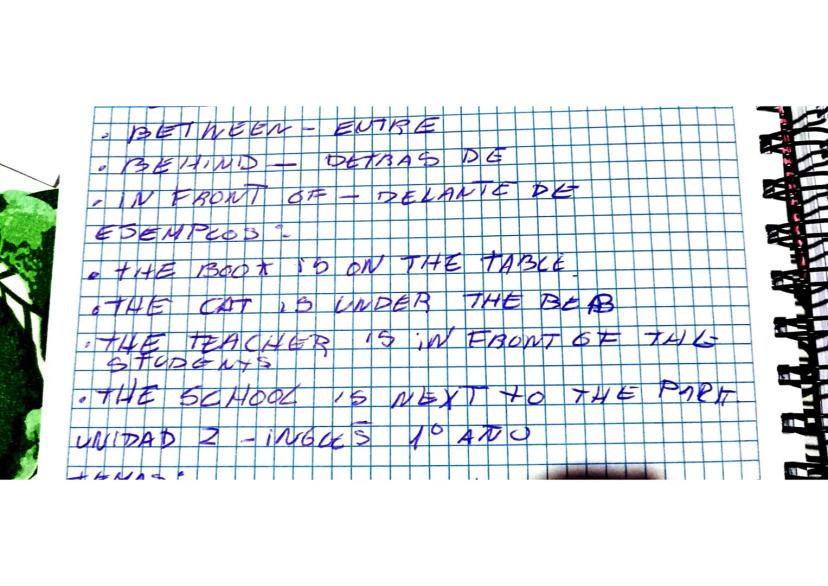 • BETWEEN - ENTRE
• BEHIND - DETRAS DE
• IN FRONT OF - DELANTE DE
EJEMPLOS:
• THE BOOK IS ON THE TABLE.
• THE CAT IS UNDER THE BEB
• THE TEACHER IS IN FRONT OF THE
STUDENTS
• THE SCHOOL IS NEXT TO THE PARK
UNIDAD 2 - INGLÉS 1º AÑO
TEMAS: